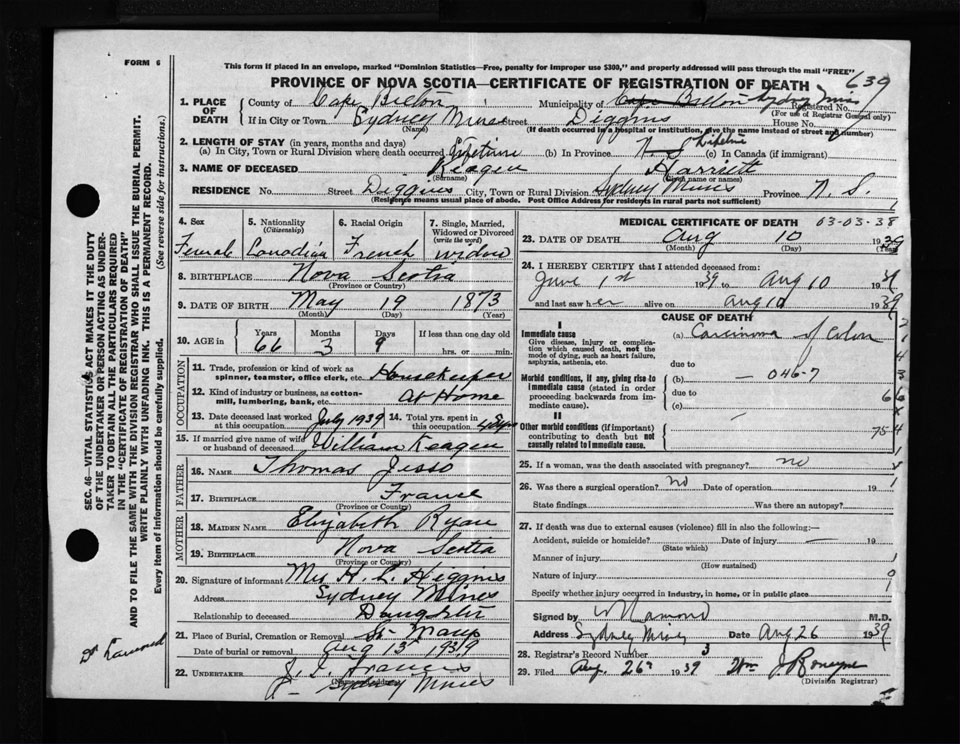 FORM 6
This form if placed in an envelope, marked "Dominion Statistics—Free, penalty for improper use $300," and properly addressed will pass through the mail "FREE"
PROVINCE OF NOVA SCOTIA—CERTIFICATE OF REGISTRATION OF DEATH
639
1. PLACE OF DEATH
County of Cape Breton Municipality of Cape Breton Sydney Mines Registered No.
(For use of Registrar General only)
If in City or Town Sydney Mines Street Diggins House No.
(Name) (If death occurred in a hospital or institution, give the name instead of street and number)
2. LENGTH OF STAY (in years, months and days)
(a) In City, Town or Rural Division where death occurred Lifetime (b) In Province N. S. Lifetime (c) In Canada (if immigrant)
3. NAME OF DECEASED Keagen Harriett
(Surname) (Given name or names)
RESIDENCE No. Street Diggins City, Town or Rural Division Sydney Mines Province N. S.
(Residence means usual place of abode. Post Office Address for residents in rural parts not sufficient)
4. Sex Female
5. Nationality (Citizenship) Canadian
6. Racial Origin French
7. Single, Married, Widowed or Divorced (write the word) widow
8. BIRTHPLACE Nova Scotia
(Province or Country)
9. DATE OF BIRTH May 19 1873
(Month) (Day) (Year)
10. AGE in Years 66 Months 3 Days 9 If less than one day old hrs. or min.
OCCUPATION
11. Trade, profession or kind of work as spinner, teamster, office clerk, etc. Housekeeper
12. Kind of industry or business, as cotton-mill, lumbering, bank, etc. At Home
13. Date deceased last worked at this occupation July 1939 14. Total yrs. spent in this occupation
15. If married give name of wife or husband of deceased William Keagen
FATHER
16. NAME Thomas Jesso
17. BIRTHPLACE France
(Province or Country)
MOTHER
18. MAIDEN NAME Elizabeth Ryan
19. BIRTHPLACE Nova Scotia
(Province or Country)
20. Signature of informant Mrs H. L. Higgins
Address Sydney Mines
Relationship to deceased Daughter
21. Place of Burial, Cremation or Removal
Date of burial or removal Aug 13 1939
22. UNDERTAKER Francis
(Name and Address) Sydney Mines
MEDICAL CERTIFICATE OF DEATH 03-03-38
23. DATE OF DEATH Aug 10 1939
(Month) (Day) (Year)
24. I HEREBY CERTIFY that I attended deceased from:
June 1st 1939 to Aug 10 1939
and last saw her alive on Aug 10 1939
CAUSE OF DEATH
I
Immediate cause (a) Carcinoma of Colon
Give disease, injury or complication which caused death, not the mode of dying, such as heart failure, asphyxia, asthenia, etc.
due to
Morbid conditions, if any, giving rise to immediate cause (stated in order proceeding backwards from immediate cause). (b) — 046-7
due to
(c)
II
Other morbid conditions (if important) contributing to death but not causally related to immediate cause.
25. If a woman, was the death associated with pregnancy? no
26. Was there a surgical operation? no Date of operation 19
State findings Was there an autopsy?
27. If death was due to external causes (violence) fill in also the following:—
Accident, suicide or homicide? Date of injury — 19
(State which)
Manner of injury
(How sustained)
Nature of injury
Specify whether injury occurred in industry, in home, or in public place
Signed by M.D.
Address Sydney Mines Date Aug 26 1939
28. Registrar's Record Number 3
29. Filed Aug. 26th 1939 Wm
(Division Registrar)
SEC. 46—VITAL STATISTICS ACT MAKES IT THE DUTY
OF THE UNDERTAKER OR PERSON ACTING AS UNDER-
TAKER TO OBTAIN ALL THE PARTICULARS REQUIRED
IN THE "CERTIFICATE OF REGISTRATION OF DEATH"
AND TO FILE THE SAME WITH THE DIVISION REGISTRAR WHO SHALL ISSUE THE BURIAL PERMIT.
WRITE PLAINLY WITH UNFADING INK. THIS IS A PERMANENT RECORD.
Every item of Information should be carefully supplied. (See reverse side for instructions.)